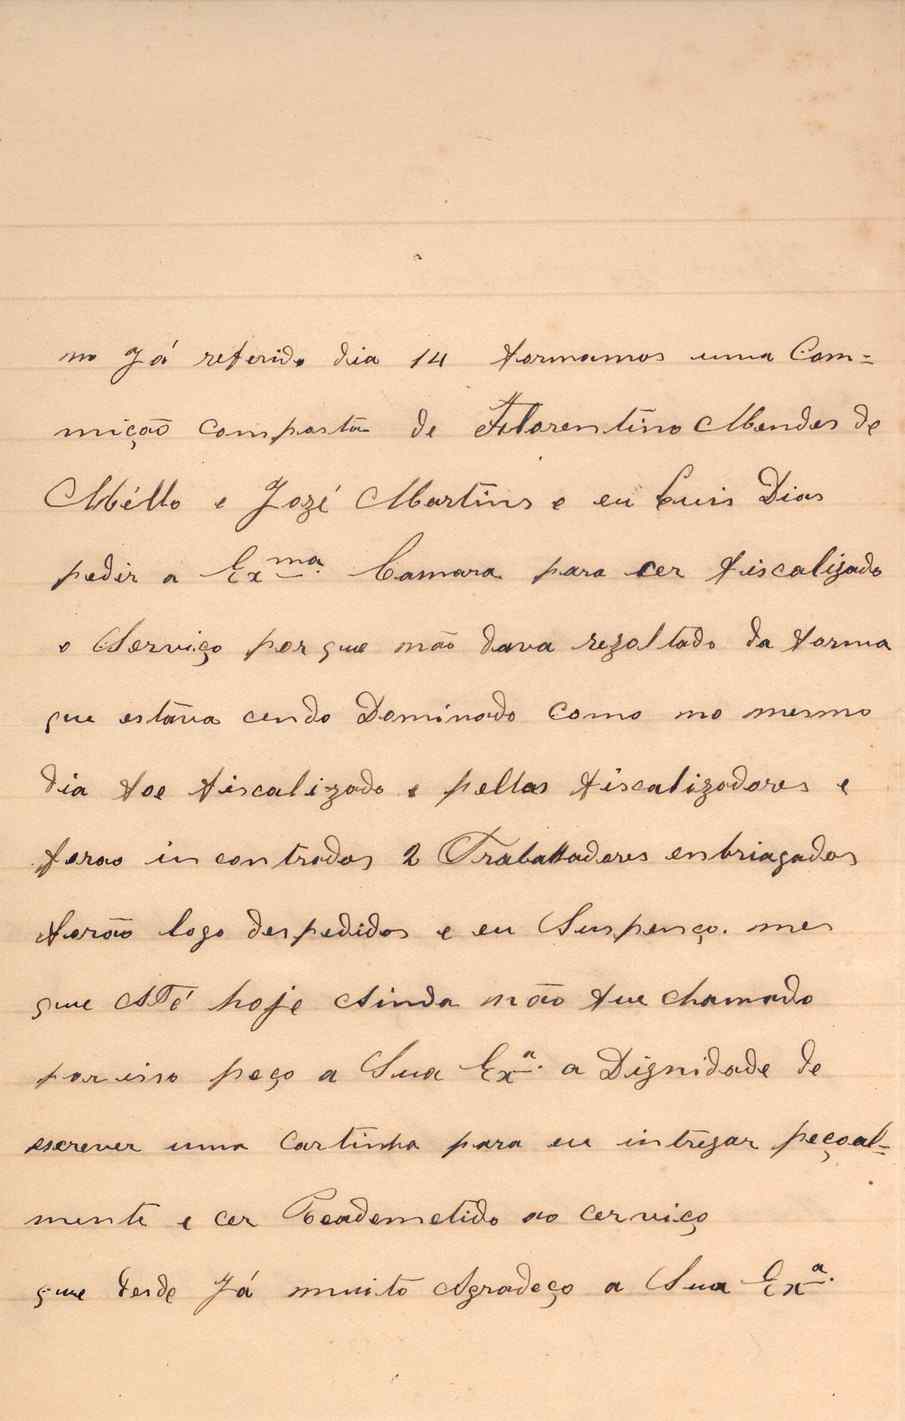 no Já referido dia 14 formamos uma Com=
miçaõ composta de Florentino Mendes de
Méllo e Jozé Martins e eu Luis Dias
pedir a Exma. Camara para cer fiscalizado
o Serviço por que não dava rezoltado da forma
que estava cendo Dominado como no mesmo
dia foe fiscalizado e pellos fiscalizadores e
forao in contrados 2 Traballadores enbriagados
forão logo despedidos e eu Suspenço. mes
que Até hoje Ainda não fue chamado
por isso peço a Sua Exa. a Dignidade de
escrever uma cartinha para eu intregar peçoal=
mente e cer Reademetido ao cerviço
que desde Já muito Agradeço a Sua Exa.